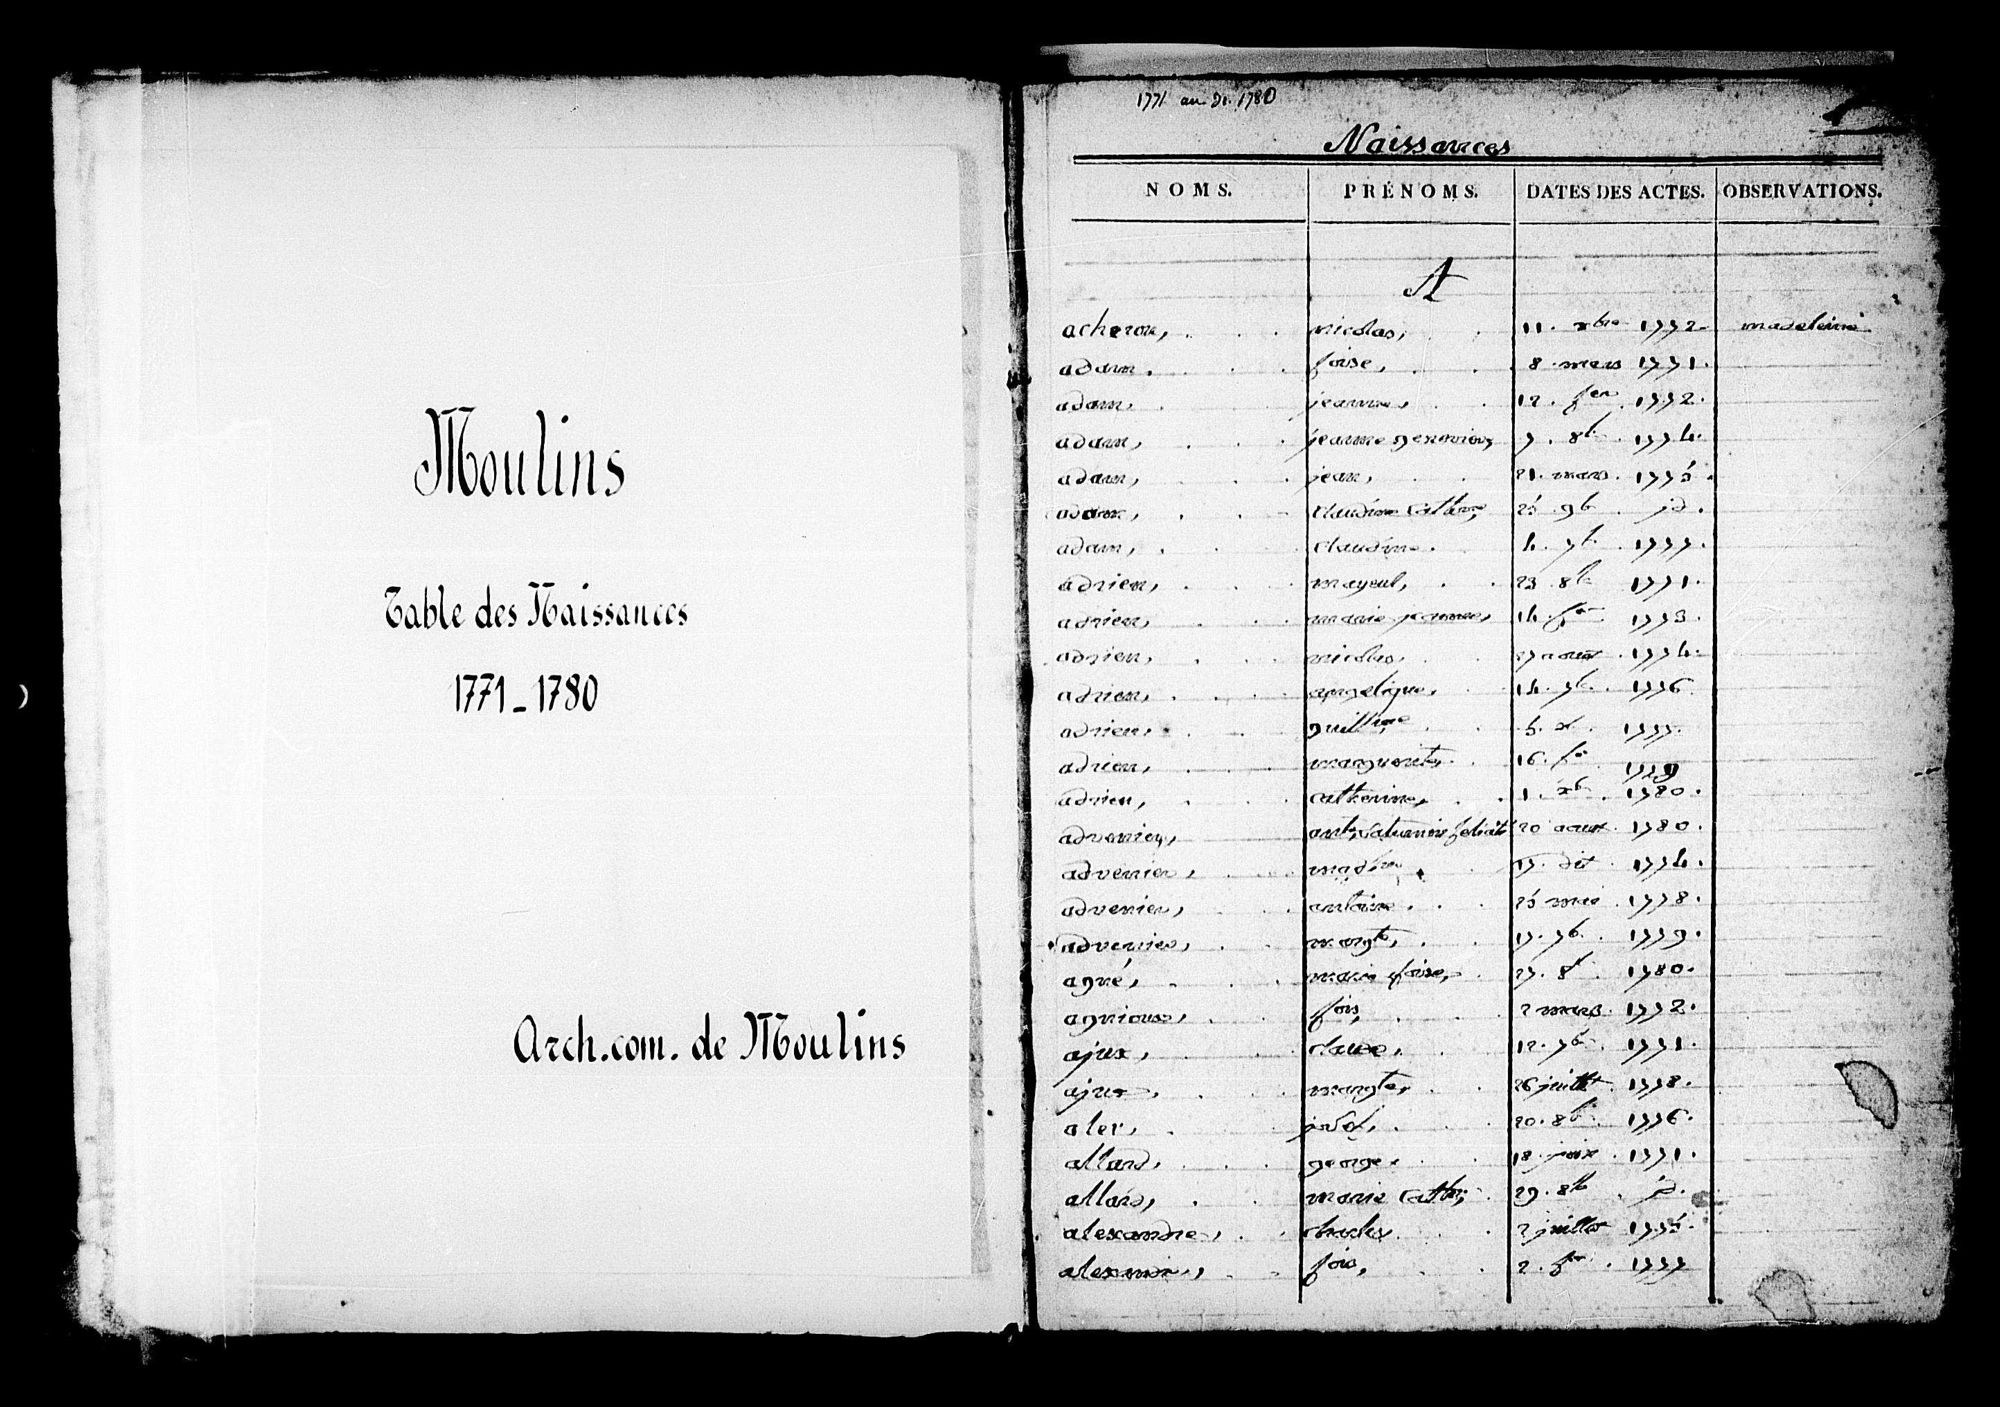 Moulins
Table des Naissances
1771_1780
Arch.com. de Moulins
1771 au 1780
Naissances
NOMS. PRÉNOMS. DATES DES ACTES. OBSERVATIONS.
A
acheron, nicolas, 11. xbre 1772 madeleine
adam. foise, 8 mars 1771.
adam, jeanne, 12. fer 1772.
adam, jeanne genevieve, 7. 8b 1774.
adam, jean, 21. mars. 1775.
adam, claudine cathne, 25 9b id.
adam, claudine. 4. 7b 1777.
adrien, mayeul, 23 8b 1771.
adrien, marie jeanne, 14. fer 1773.
adrien, nicolas, 27 aout 1774.
adrien, angelique, 14. 7b 1776
adrien, guillme 5. x 1777.
adrien, marguerite, 16. fer 1779
adrien, catherine, 1. xb 1780.
advenier, ant, saturnin felicité 20 aout. 1780.
advenier, madne 17. dit 1774.
advenier, antoine 25 mai 1778.
advenier, margte, 17. 7b. 1779.
agné, marie foise, 27. 8b 1780.
agnioux, fois, 2 mars 1772.
ajux, claude, 12. 7b. 1771.
ajux margte, 26 juillet 1778.
aler, 20. 8b 1776.
allard, george, 18. juin 1771.
allard, marie cathe, 29. 8b id.
alexandre, charles 2 juillet 1775.
fois, 2. fer 1777